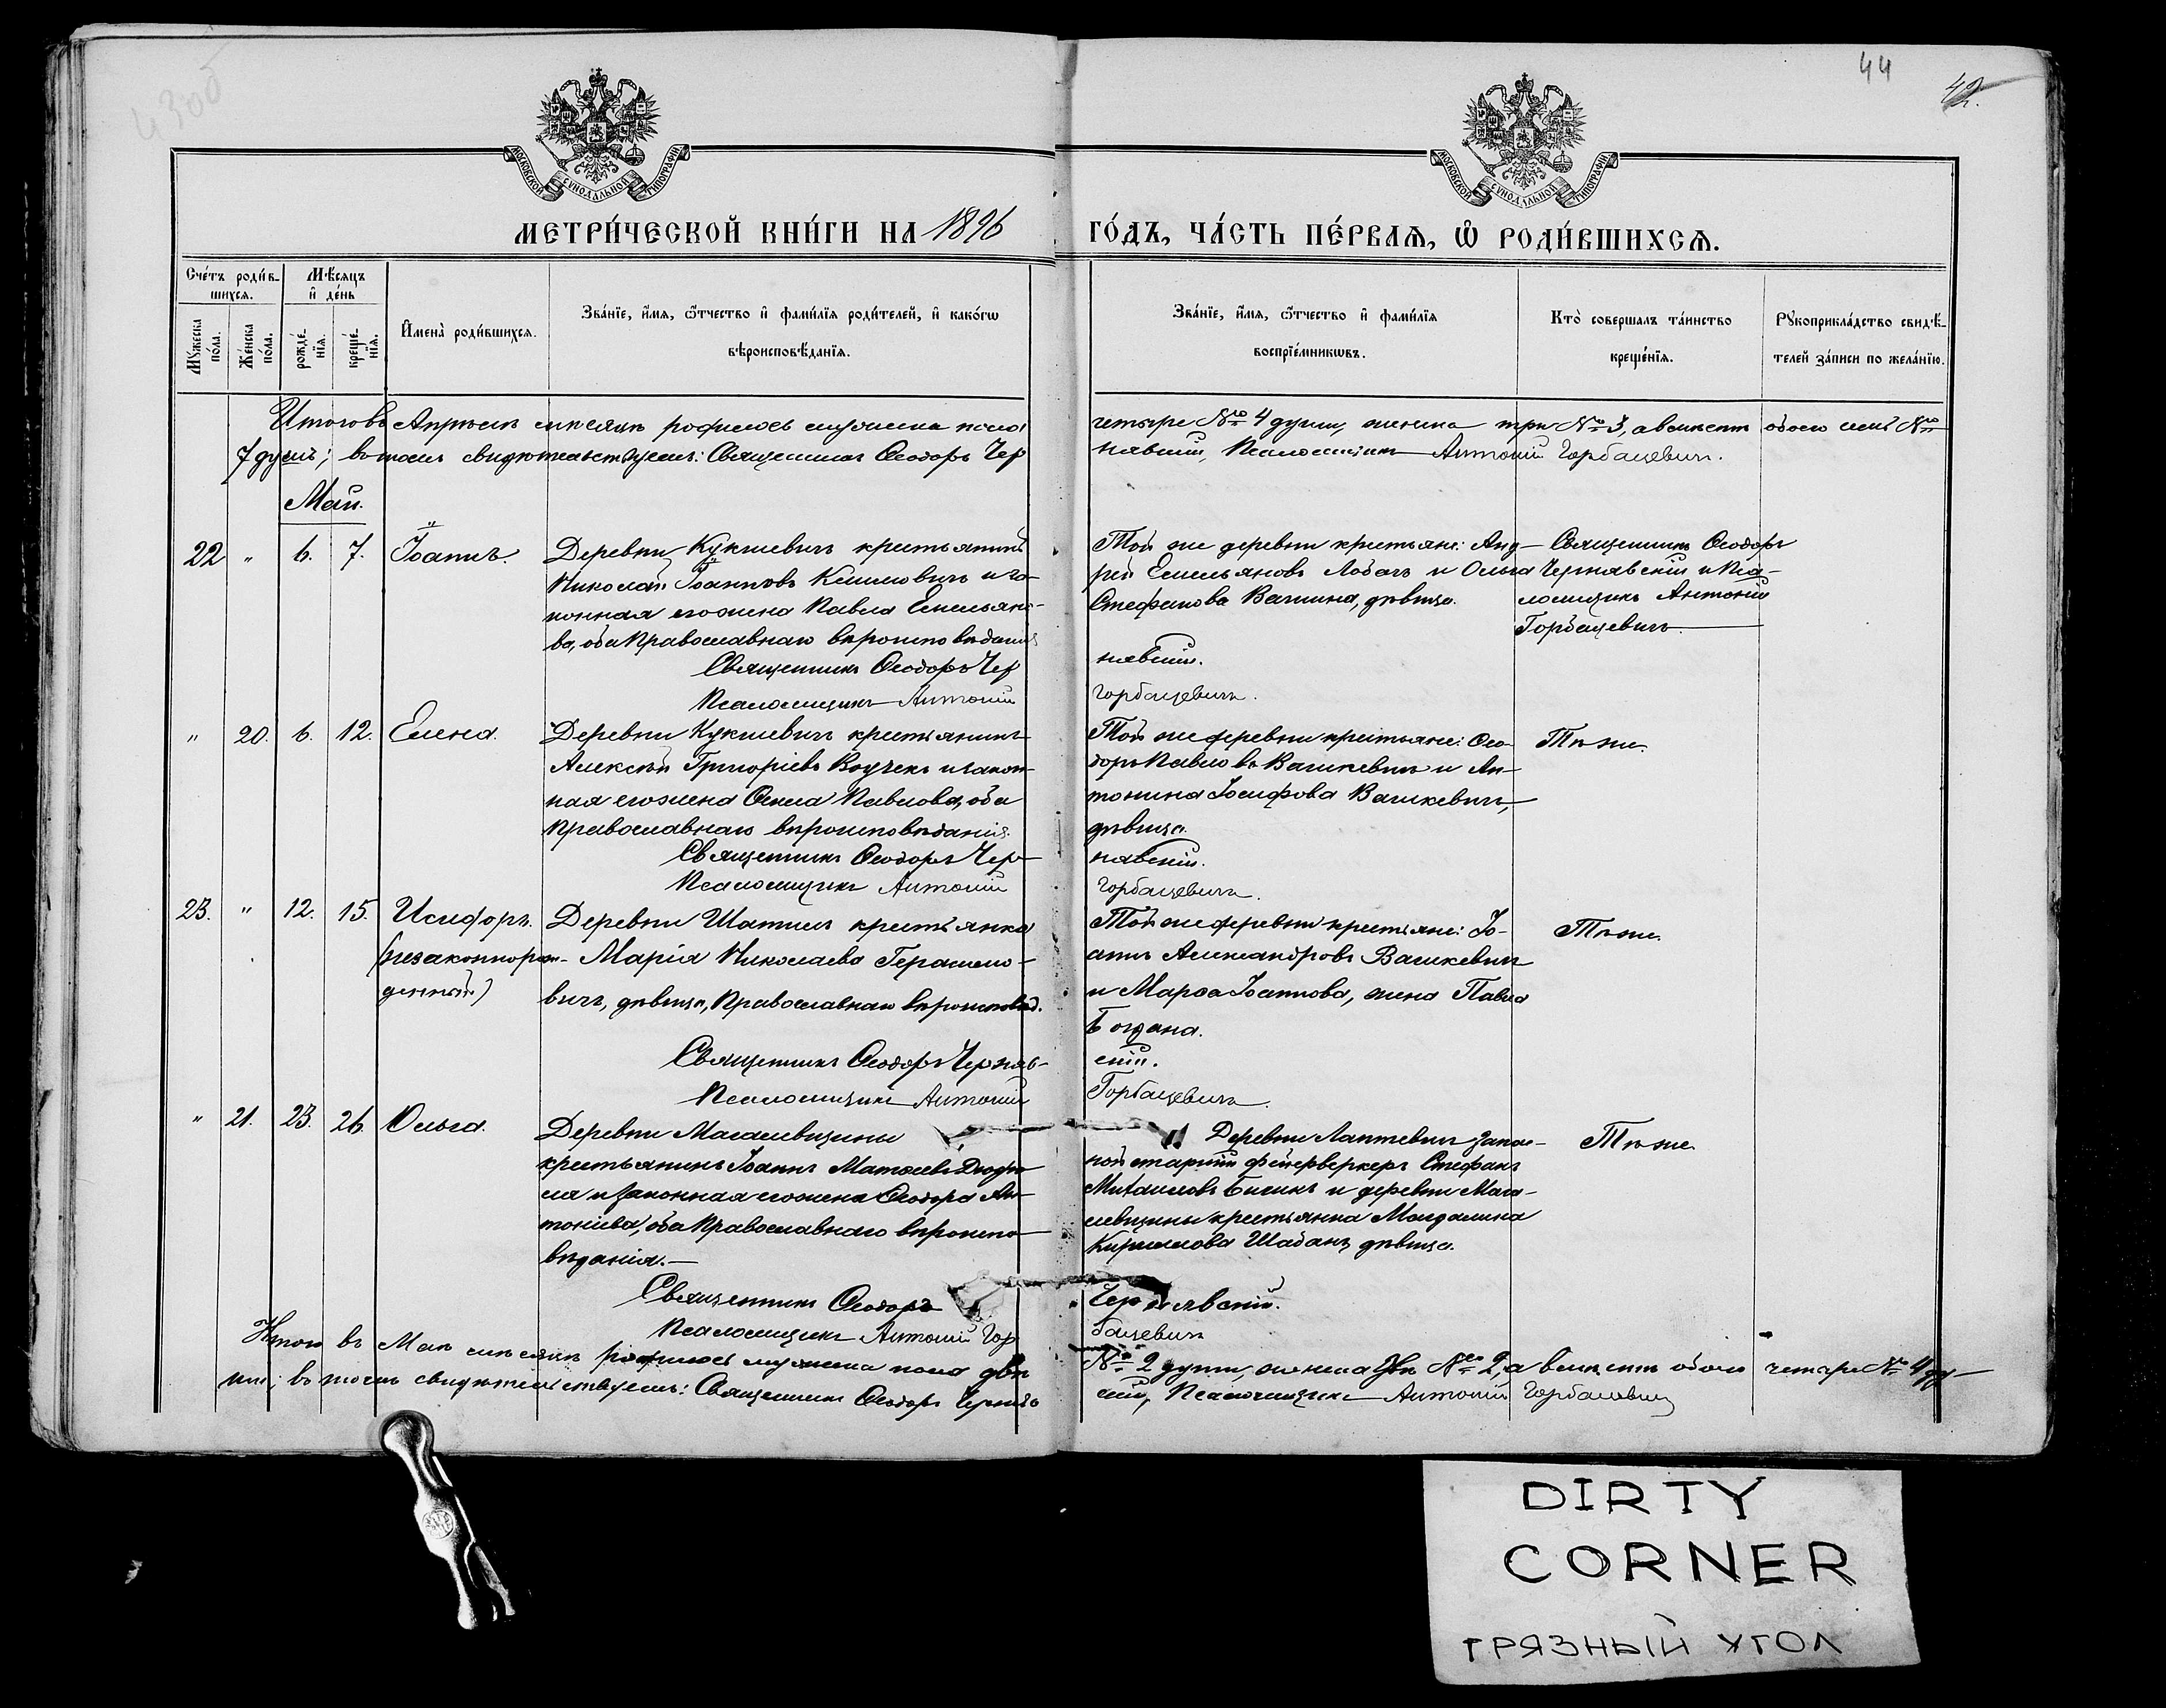 430об
44
42.
МОСКОВСКОЙ СУНОДАЛЬНОЙ ТИПОГРАФІИ
МОСКОВСКОЙ СУНОДАЛЬНОЙ ТИПОГРАФІИ
МЕТРИ́ЧЕСКОЙ КНИ́ГИ НА 1896
ГО́ДЪ, ЧА́СТЬ ПЕ́РВАѦ, Ѡ҆ РОДИ́ВШИХСѦ.
Сче́тъ роди́в-
шихсѧ.
Мѣ́сѧцъ
и҆ де́нь
Мꙋ́жеска
по́ла.
Же́нска
по́ла.
рожде́-
нїѧ.
креще́-
нїѧ.
И҆мена̀ роди́вшихсѧ.
Зва́нїе, и҆́мѧ, ѻ҆́тчество и҆ фами́лїѧ роди́телей, и҆ како́гѡ
вѣроисповѣ́данїѧ.
Зва́нїе, и҆́мѧ, ѻ҆́тчество и҆ фами́лїѧ
воспрїе́мникѡвъ.
Кто̀ соверша́лъ та́инство
креще́нїѧ.
Рꙋкоприкла́дство свидѣ́-
телей за́писи по жела́нїю.
Итого въ Апрѣлѣ мѣсяцѣ родилось мужеска пола
четыре № 4 души, женска три № 3, а вмѣстѣ обоего семь №
7 душъ; въ томъ свидѣтельствуемъ: Священникъ Ѳеодоръ Чер
нявскій, Псаломщикъ Антоній Горбацевичъ.
Май.
22 " 6. 7. Іоаннъ.
Деревни Кукшевичъ крестьянинъ
Николай Іоанновъ Климовичъ и за-
конная его жена Павла Емельяно-
ва, оба Православнаго вѣроисповѣданія
Священникъ Ѳеодоръ Чер
Псаломщикъ Антоній
Той же деревни крестьяне: Анд-
рей Емельяновъ Лобачъ и Ольга
Стефанова Вашина, дѣвица.
нявскій.
Горбацевичъ.
Священникъ Ѳеодоръ
Чернявскій и Пса-
ломщикъ Антоній
Горбацевичъ.
" 20. 6. 12. Елена.
Деревни Кукшевичъ крестьянинъ
Алексѣй Григоріевъ Вручекъ и закон-
ная его жена Ѳекла Павлова, оба
Православнаго вѣроисповѣданія.
Священникъ Ѳеодоръ Чер-
Псаломщикъ Антоній
Той же деревни крестьяне: Ѳео-
доръ Павловъ Вашкевичъ и Ан-
тонина Іосифова Вашкевичъ,
дѣвица.
нявскій.
Горбацевичъ.
Тѣ же.
23. " 12. 15. Исидоръ.
(незаконнорож-
денный)
Деревни Шатилъ крестьянка
Марія Николаева Герасимо-
вичъ, дѣвица, Православнаго вѣроисповѣд.
Священникъ Ѳеодоръ Чернявс-
Псаломщикъ Антоній
Той же деревни крестьяне: Іо-
аннъ Александровъ Вашкевичъ
и Марѳа Іоаннова, жена Павла
Богдана.
скій.
Горбацевичъ.
Тѣ же.
" 21. 23. 26. Ольга.
Деревни Магалевщины
крестьянинъ Іоаннъ Матѳеевъ
и законная его жена Ѳеодора Ан-
тоніева, оба Православнаго вѣроиспо-
вѣданія.—
Священникъ Ѳеодоръ
Псаломщикъ Антоній Гор
Деревни Лаптевичъ запас-
ной старшій фейерверкеръ Стефанъ
Михаиловъ Бичикъ и деревни Мага-
левщины крестьянка Магдалина
Кириллова Шабанъ, дѣвица.
Чернявскій.
бацевичъ
Тѣ же.
Итого въ Маѣ мѣсяцѣ родилось мужеска пола двѣ
№ 2 души, женска двѣ № 2, а вмѣстѣ обоего четыре № 4 ду-
ши; въ томъ свидѣтельствуемъ: Священникъ Ѳеодоръ Чернявс
скій, Псаломщикъ Антоній Горбацевичъ
DIRTY
CORNER
ГРЯЗНЫЙ УГОЛ